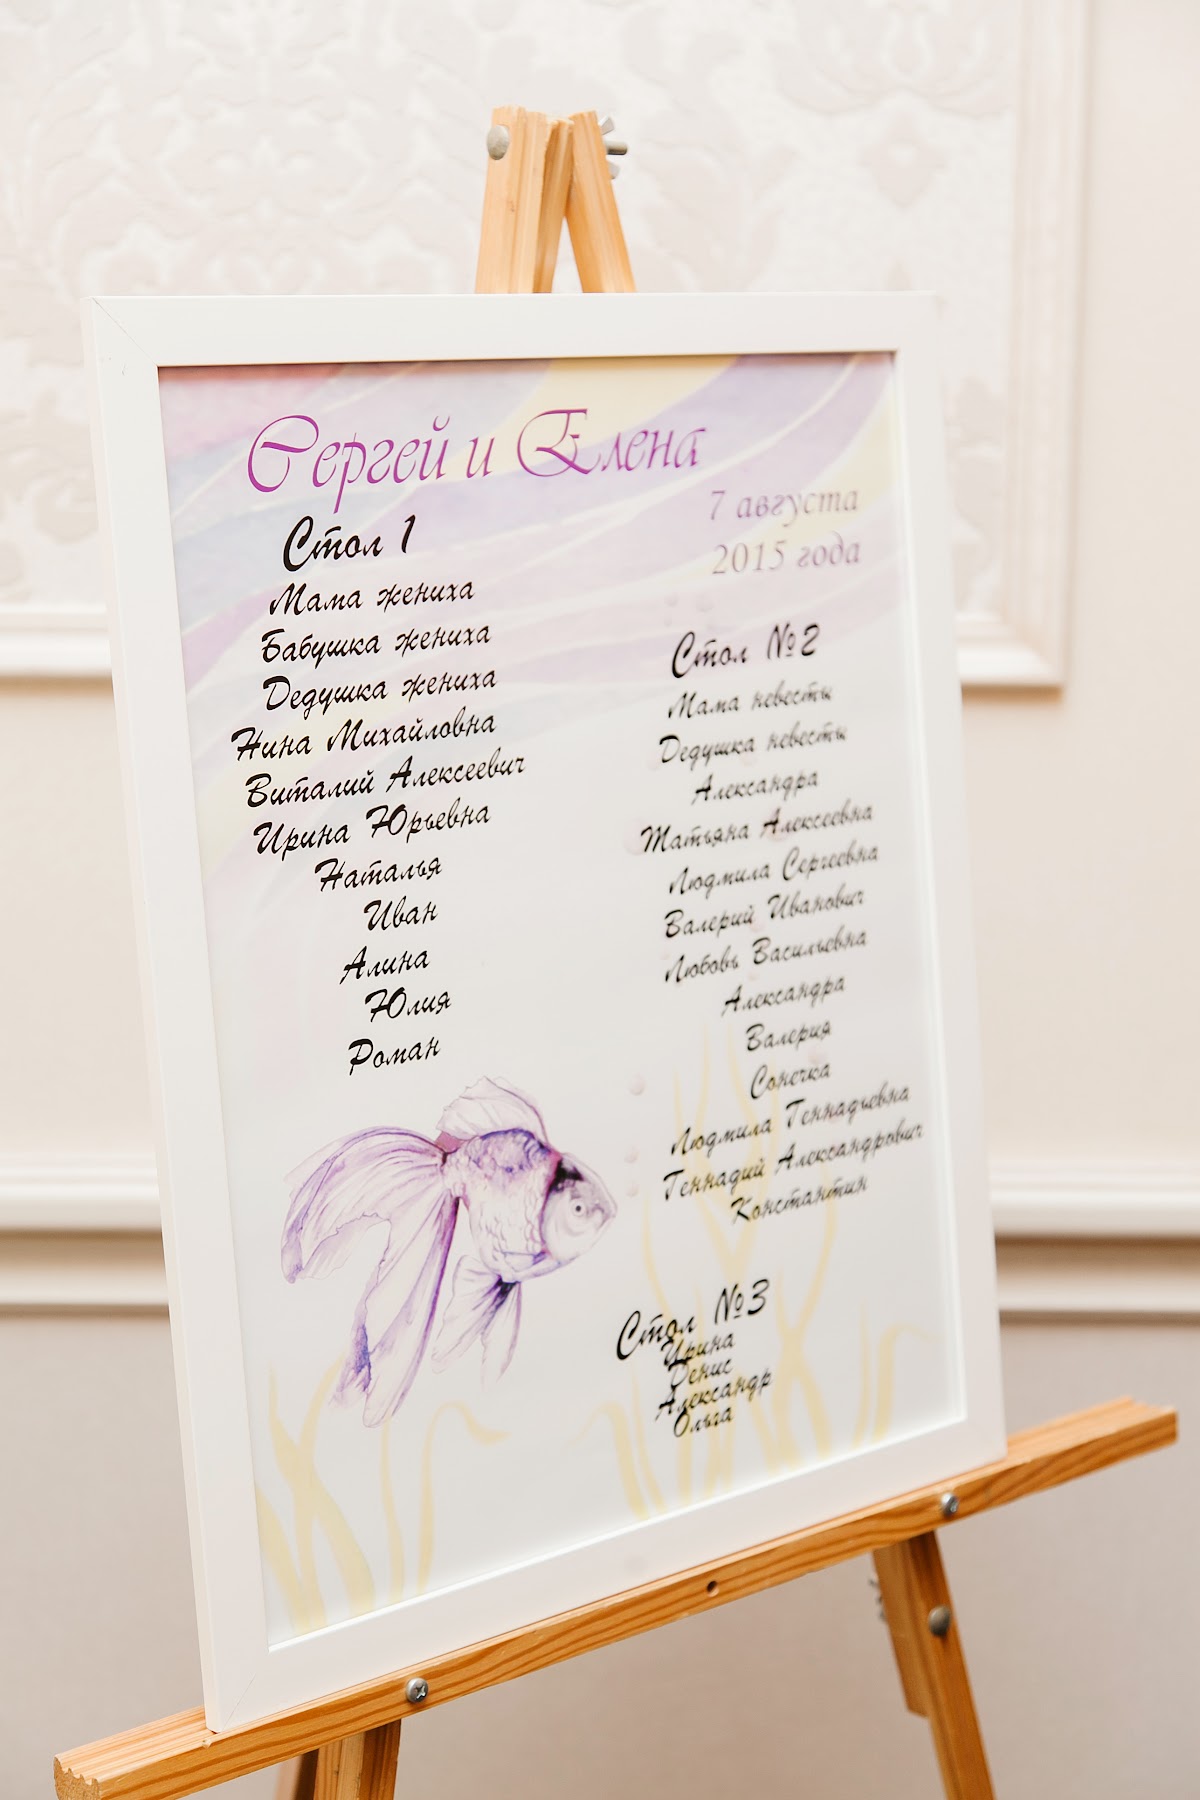 Сергей и Елена
7 августа
2015 года
Стол 1
Мама жениха
Бабушка жениха
Дедушка жениха
Нина Михайловна
Виталий Алексеевич
Ирина Юрьевна
Наталья
Иван
Алина
Юлия
Роман
Стол №2
Мама невесты
Дедушка невесты
Александра
Татьяна Алексеевна
Людмила Сергеевна
Валерий Иванович
Любовь Васильевна
Александра
Валерия
Сонечка
Людмила Геннадьевна
Геннадий Александрович
Константин
Стол №3
Ирина
Денис
Александр
Ольга